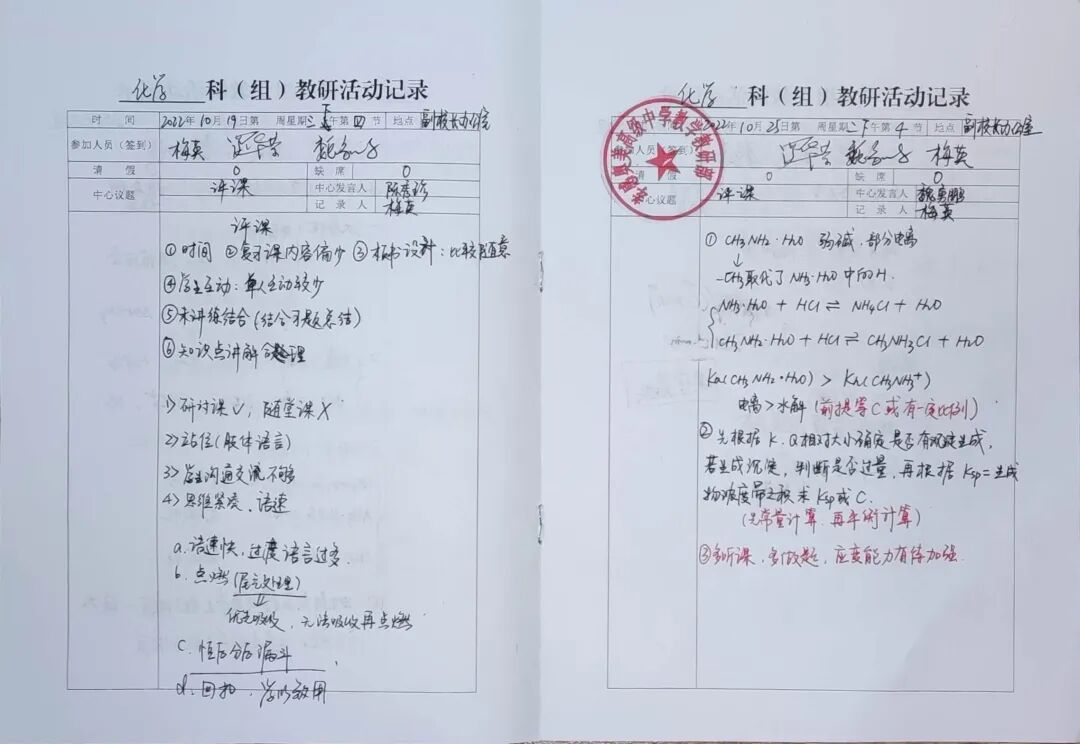 化学 科（组）教研活动记录
时间 2022年10月19日第 周星期三下午第四节 地点 副校长办公室
参加人员（签到） 梅英
请假 0 缺席 0
中心议题 评课 中心发言人
记录人 梅英
评课
①时间 ②复习课内容偏少 ③板书设计：比较随意
④学生互动：单人互动较少
⑤未讲练结合（结合习题总结）
⑥知识点讲解合理
1>研讨课√，随堂课×
2>站位（肢体语言）
3>学生沟通交流不够
4>思维紧凑、语速
a.语速快，过度语言过多.
b.点燃（尾气处理）
↓
优先吸收，无法吸收再点燃
c.恒压分压漏斗
d.回扣，学以致用
化学 科（组）教研活动记录
2022年10月25日第 周星期二下午第4节 地点 副校长办公室
参加人员（签到） 梅英
请假 0 缺席 0
中心议题 评课 中心发言人 魏勇鹏
记录人 梅英
高级中学教学教研部
①CH3NH2·H2O 弱碱，部分电离
↓
-CH3取代了NH3·H2O中的H.
NH3·H2O + HCl ⇌ NH4Cl + H2O
CH3NH2·H2O + HCl ⇌ CH3NH3Cl + H2O
(CH3NH2·H2O) > (CH3NH3+)
电离>水解（前提等C或有一定比例）
②先根据K、Q相对大小确定是否有沉淀生成，
若生成沉淀，判断是否过量，再根据Ksp=生成
物浓度幂之积求Ksp或C.
（先常量计算，再平衡计算）
③多听课，多做题，应变能力有待加强.